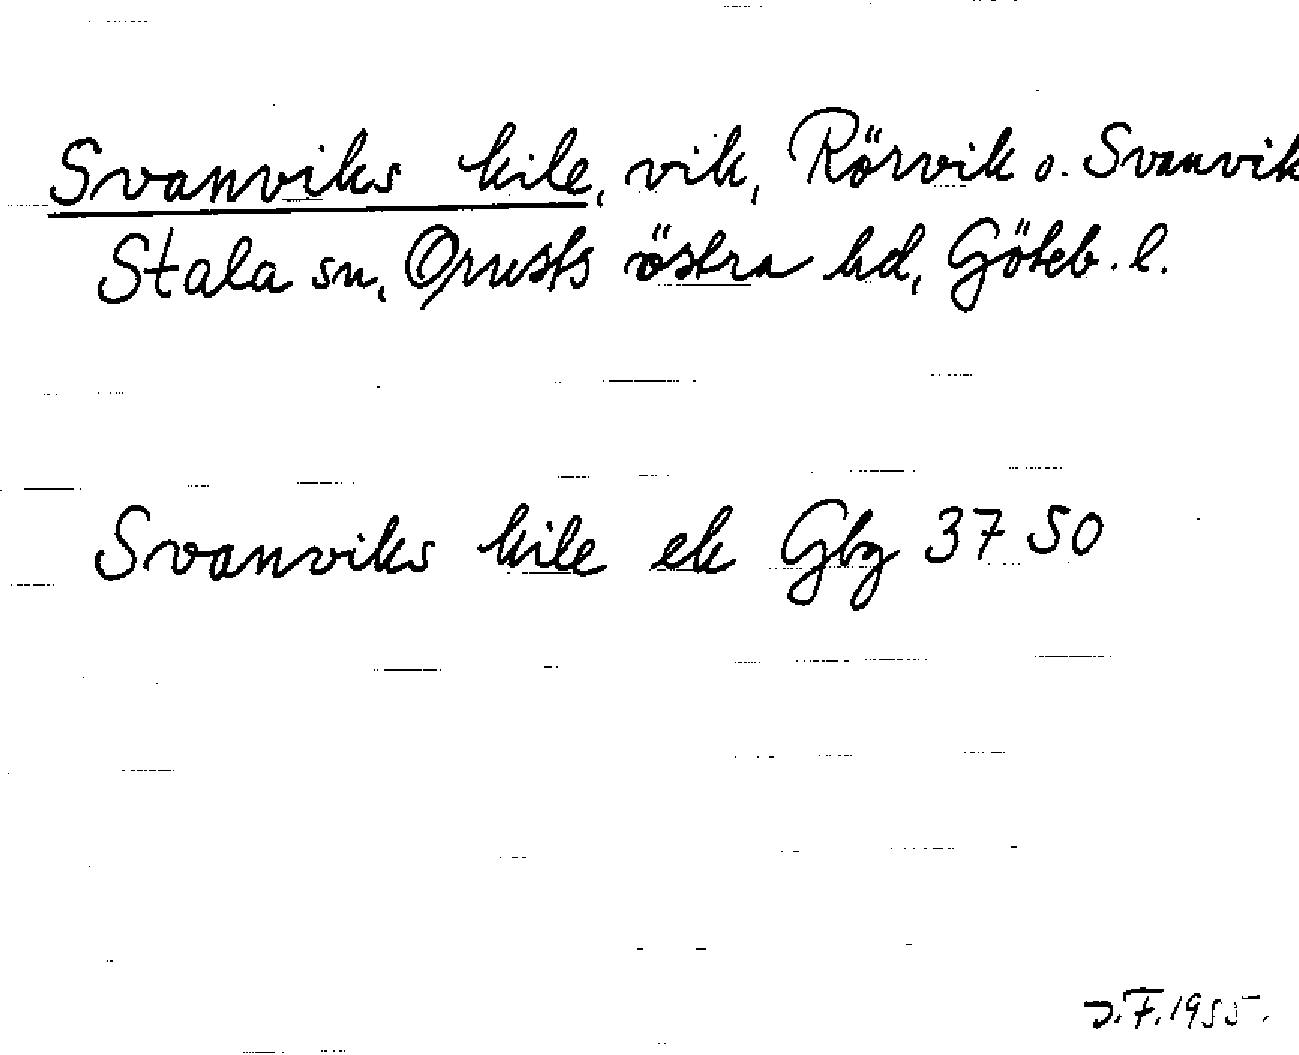 Svanviks kile, vik, Rörvik o. Svanvik
Stala sn, Orusts östra hd, Göteb. l.
Svanviks kile ek Gbg 37 50
J.F. 1955.